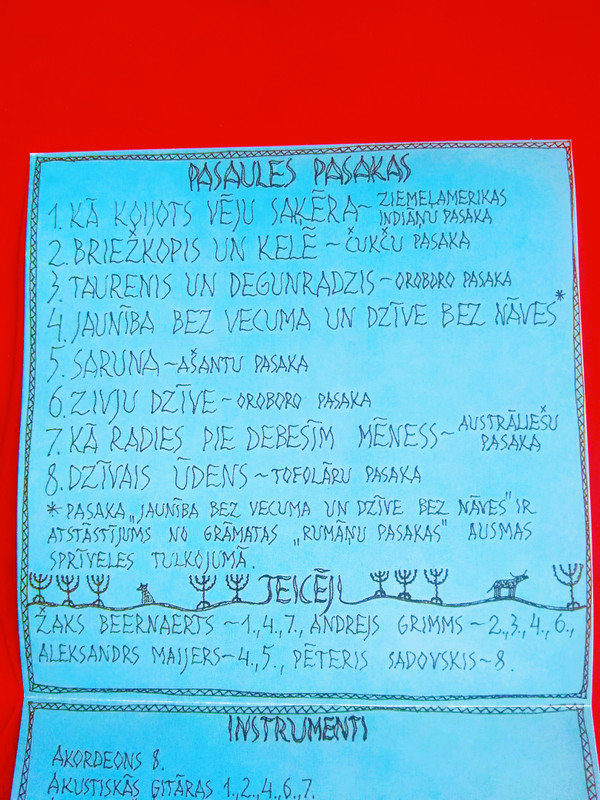 PASAULES PASAKAS
1. KĀ KOIJOTS VĒJU SAĶĒRA ~ ZIEMEĻAMERIKAS
INDIĀŅU PASAKA
2. BRIEŽKOPIS UN KELĒ ~ ČUKČU PASAKA
3. TAURENIS UN DEGUNRADZIS ~ OROBORO PASAKA
4. JAUNĪBA BEZ VECUMA UN DZĪVE BEZ NĀVES*
5. SARUNA ~ AŠANTU PASAKA
6. ZIVJU DZĪVE ~ OROBORO PASAKA
7. KĀ RADIES PIE DEBESĪM MĒNESS ~ AUSTRĀLIEŠU
PASAKA
8. DZĪVAIS ŪDENS ~ TOFOLĀRU PASAKA
* PASAKA „JAUNĪBA BEZ VECUMA UN DZĪVE BEZ NĀVES" IR
ATSTĀSTĪJUMS NO GRĀMATAS „RUMĀŅU PASAKAS" AUSMAS
SPRĪVELES TULKOJUMĀ.
TEICĒJI
ŽAKS BEERNAERTS ~ 1., 4., 7., ANDREJS GRIMMS ~ 2., 3., 4., 6.,
ALEKSANDRS MAIJERS ~ 4., 5., PĒTERIS SADOVSKIS ~ 8.
INSTRUMENTI
AKORDEONS 8.
AKUSTISKĀS ĢITĀRAS 1., 2., 4., 6., 7.